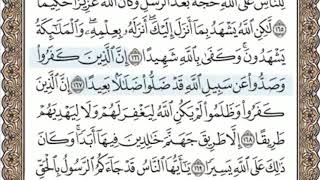 لِلنَّاسِ عَلَى ٱللَّهِ حُجَّةٌۢ بَعْدَ ٱلرُّسُلِ وَكَانَ ٱللَّهُ عَزِيزًا حَكِيمًا
١٦٥ لَّٰكِنِ ٱللَّهُ يَشْهَدُ بِمَآ أَنزَلَ إِلَيْكَ أَنزَلَهُۥ بِعِلْمِهِۦ وَٱلْمَلَٰٓئِكَةُ
يَشْهَدُونَ وَكَفَىٰ بِٱللَّهِ شَهِيدًا ١٦٦ إِنَّ ٱلَّذِينَ كَفَرُوا۟
وَصَدُّوا۟ عَن سَبِيلِ ٱللَّهِ قَدْ ضَلُّوا۟ ضَلَٰلًۢا بَعِيدًا ١٦٧ إِنَّ ٱلَّذِينَ
كَفَرُوا۟ وَظَلَمُوا۟ لَمْ يَكُنِ ٱللَّهُ لِيَغْفِرَ لَهُمْ وَلَا لِيَهْدِيَهُمْ
طَرِيقًا ١٦٨ إِلَّا طَرِيقَ جَهَنَّمَ خَٰلِدِينَ فِيهَآ أَبَدًا وَكَانَ
ذَٰلِكَ عَلَى ٱللَّهِ يَسِيرًا ١٦٩ يَٰٓأَيُّهَا ٱلنَّاسُ قَدْ جَآءَكُمُ ٱلرَّسُولُ بِٱلْحَقِّ